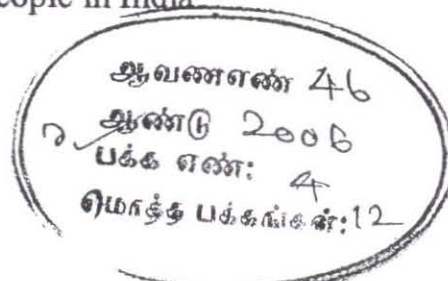 eople in India
ஆவணஎண் 46
ஆண்டு 2006
பக்க எண்: 4
மொத்த பக்கங்கள்:12